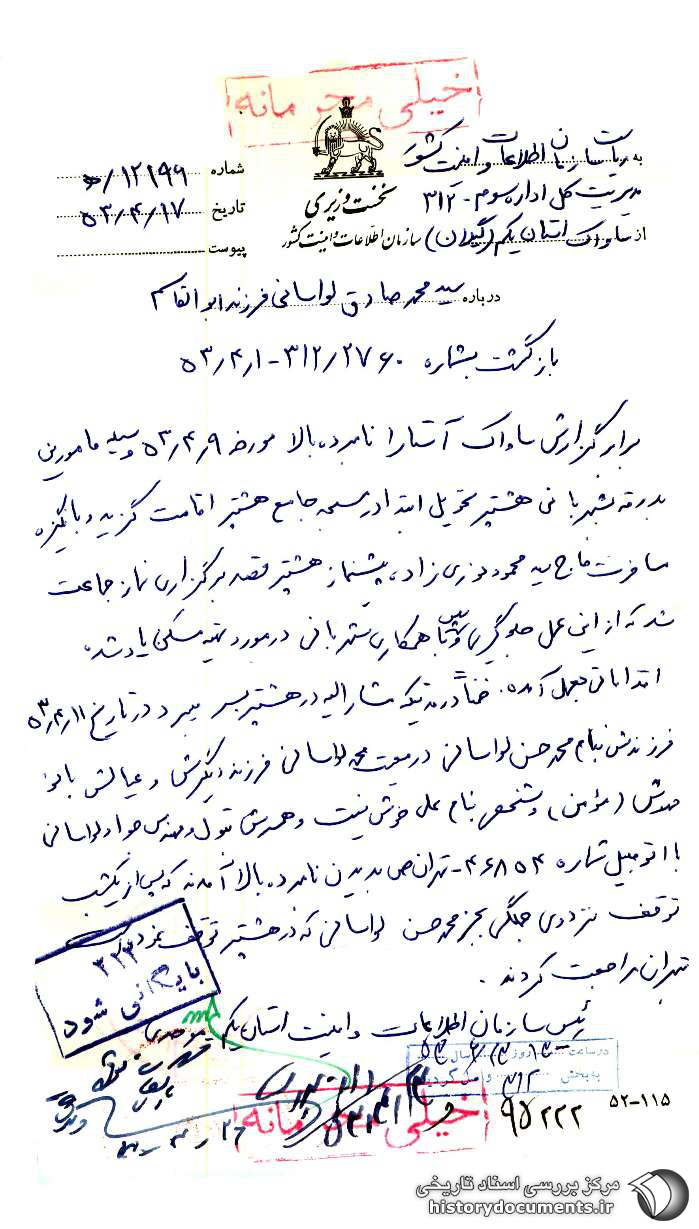 خیلی محرمانه
به ریاست سازمان اطلاعات و امنیت کشور
مدیریت کل اداره سوم - ۳۱۲
از ساواک استان یکم (گیلان)
نخست وزیری
سازمان اطلاعات و امنیت کشور
شماره ۱۲۱۹۶/ه
تاریخ ۵۳/۴/۱۷
پیوست
درباره سید محمد صادق لواسانی فرزند ابوالقاسم
بازگشت بشماره ۳۱۲/۲۷۶۰ - ۵۳/۴/۱
برابر گزارش ساواک آستارا نامبرده بالا مورخه ۵۳/۴/۹ وسیله مامورین
بدرقه بشهربانی هشتپر تحویل ابتدا در مسجد جامع هشتپر اقامت گزید و با انگیزه
مسافرت حاج سید محمود نوری زاده پیشنماز هشتپر قصد برگزاری نماز جماعت
شد که از این عمل جلوگیری و سپس با همکاری شهربانی در مورد تهیه مسکن یاد شده
اقداماتی بعمل آمده. ضمناً در مدتیکه مشارالیه در هشتپر بسر میبرد در تاریخ ۵۳/۴/۱۱
فرزندش بنام محمد حسن لواسانی در معیت محمد لواسانی فرزند دیگرش و عیالش بانو
(مؤمن) و شخصی بنام علی خوش نیت و همسرش بتول و مهندس جواد لواسانی
با اتومبیل شماره ۴۶۸۵۴ - تهران ص بدیدن نامبرده بالا آمدند که پس از یکشب
توقف نزد وی جملگی بجز محمد حسن لواسانی که در هشتپر توقف نمود به
تهران مراجعت کردند.
رئیس سازمان اطلاعات و امنیت استان یکم
۳۲۳
بایگانی شود
در ساعت روز سال
به بخش ۳۱۲ واصل گردید
خیلی محرمانه
۹۵۲۲۲
۵۲-۱۱۵
مرکز بررسی اسناد تاریخی
historydocuments.ir